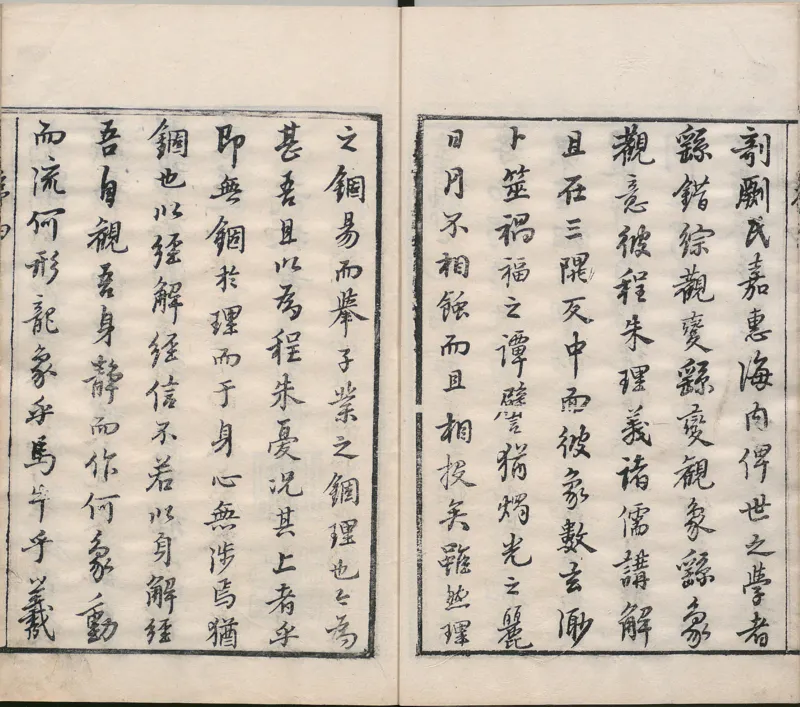 剞劂氏嘉惠海内俾世之學者
繇錯綜觀變繇變觀象繇象
觀意彼程朱理義諸儒講解
且在三隅反中而彼象數玄渺
卜筮禍福之譚譬猶燭光之麗
日月不相蝕而且相投矣雖然理
之錮易而舉子業之錮理也亡為
甚吾且以為程朱憂況其上者乎
即無錮於理而于身心無涉焉猶
錮也以經解經信不若以身解經
吾自觀吾身靜而作何象動
而流何形龍象乎馬牛乎羲